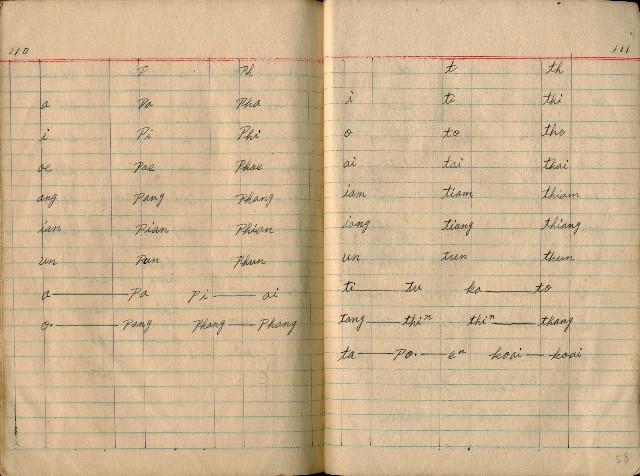 110
P Ph
a Pa Pha
i Pi Phi
oe Poe Phoe
ang Pang Phang
ian Pian Phian
un Pun Phun
a — Pa Pi — ai
o· — Pang Phang — Phang
111
t th
i ti thi
o to tho
ai tai thai
iam tiam thiam
iang tiang thiang
un tun thun
ti — tu ka — to
Tang — thiⁿ thiⁿ — thang
ta — Po· — eⁿ koai — koai
58